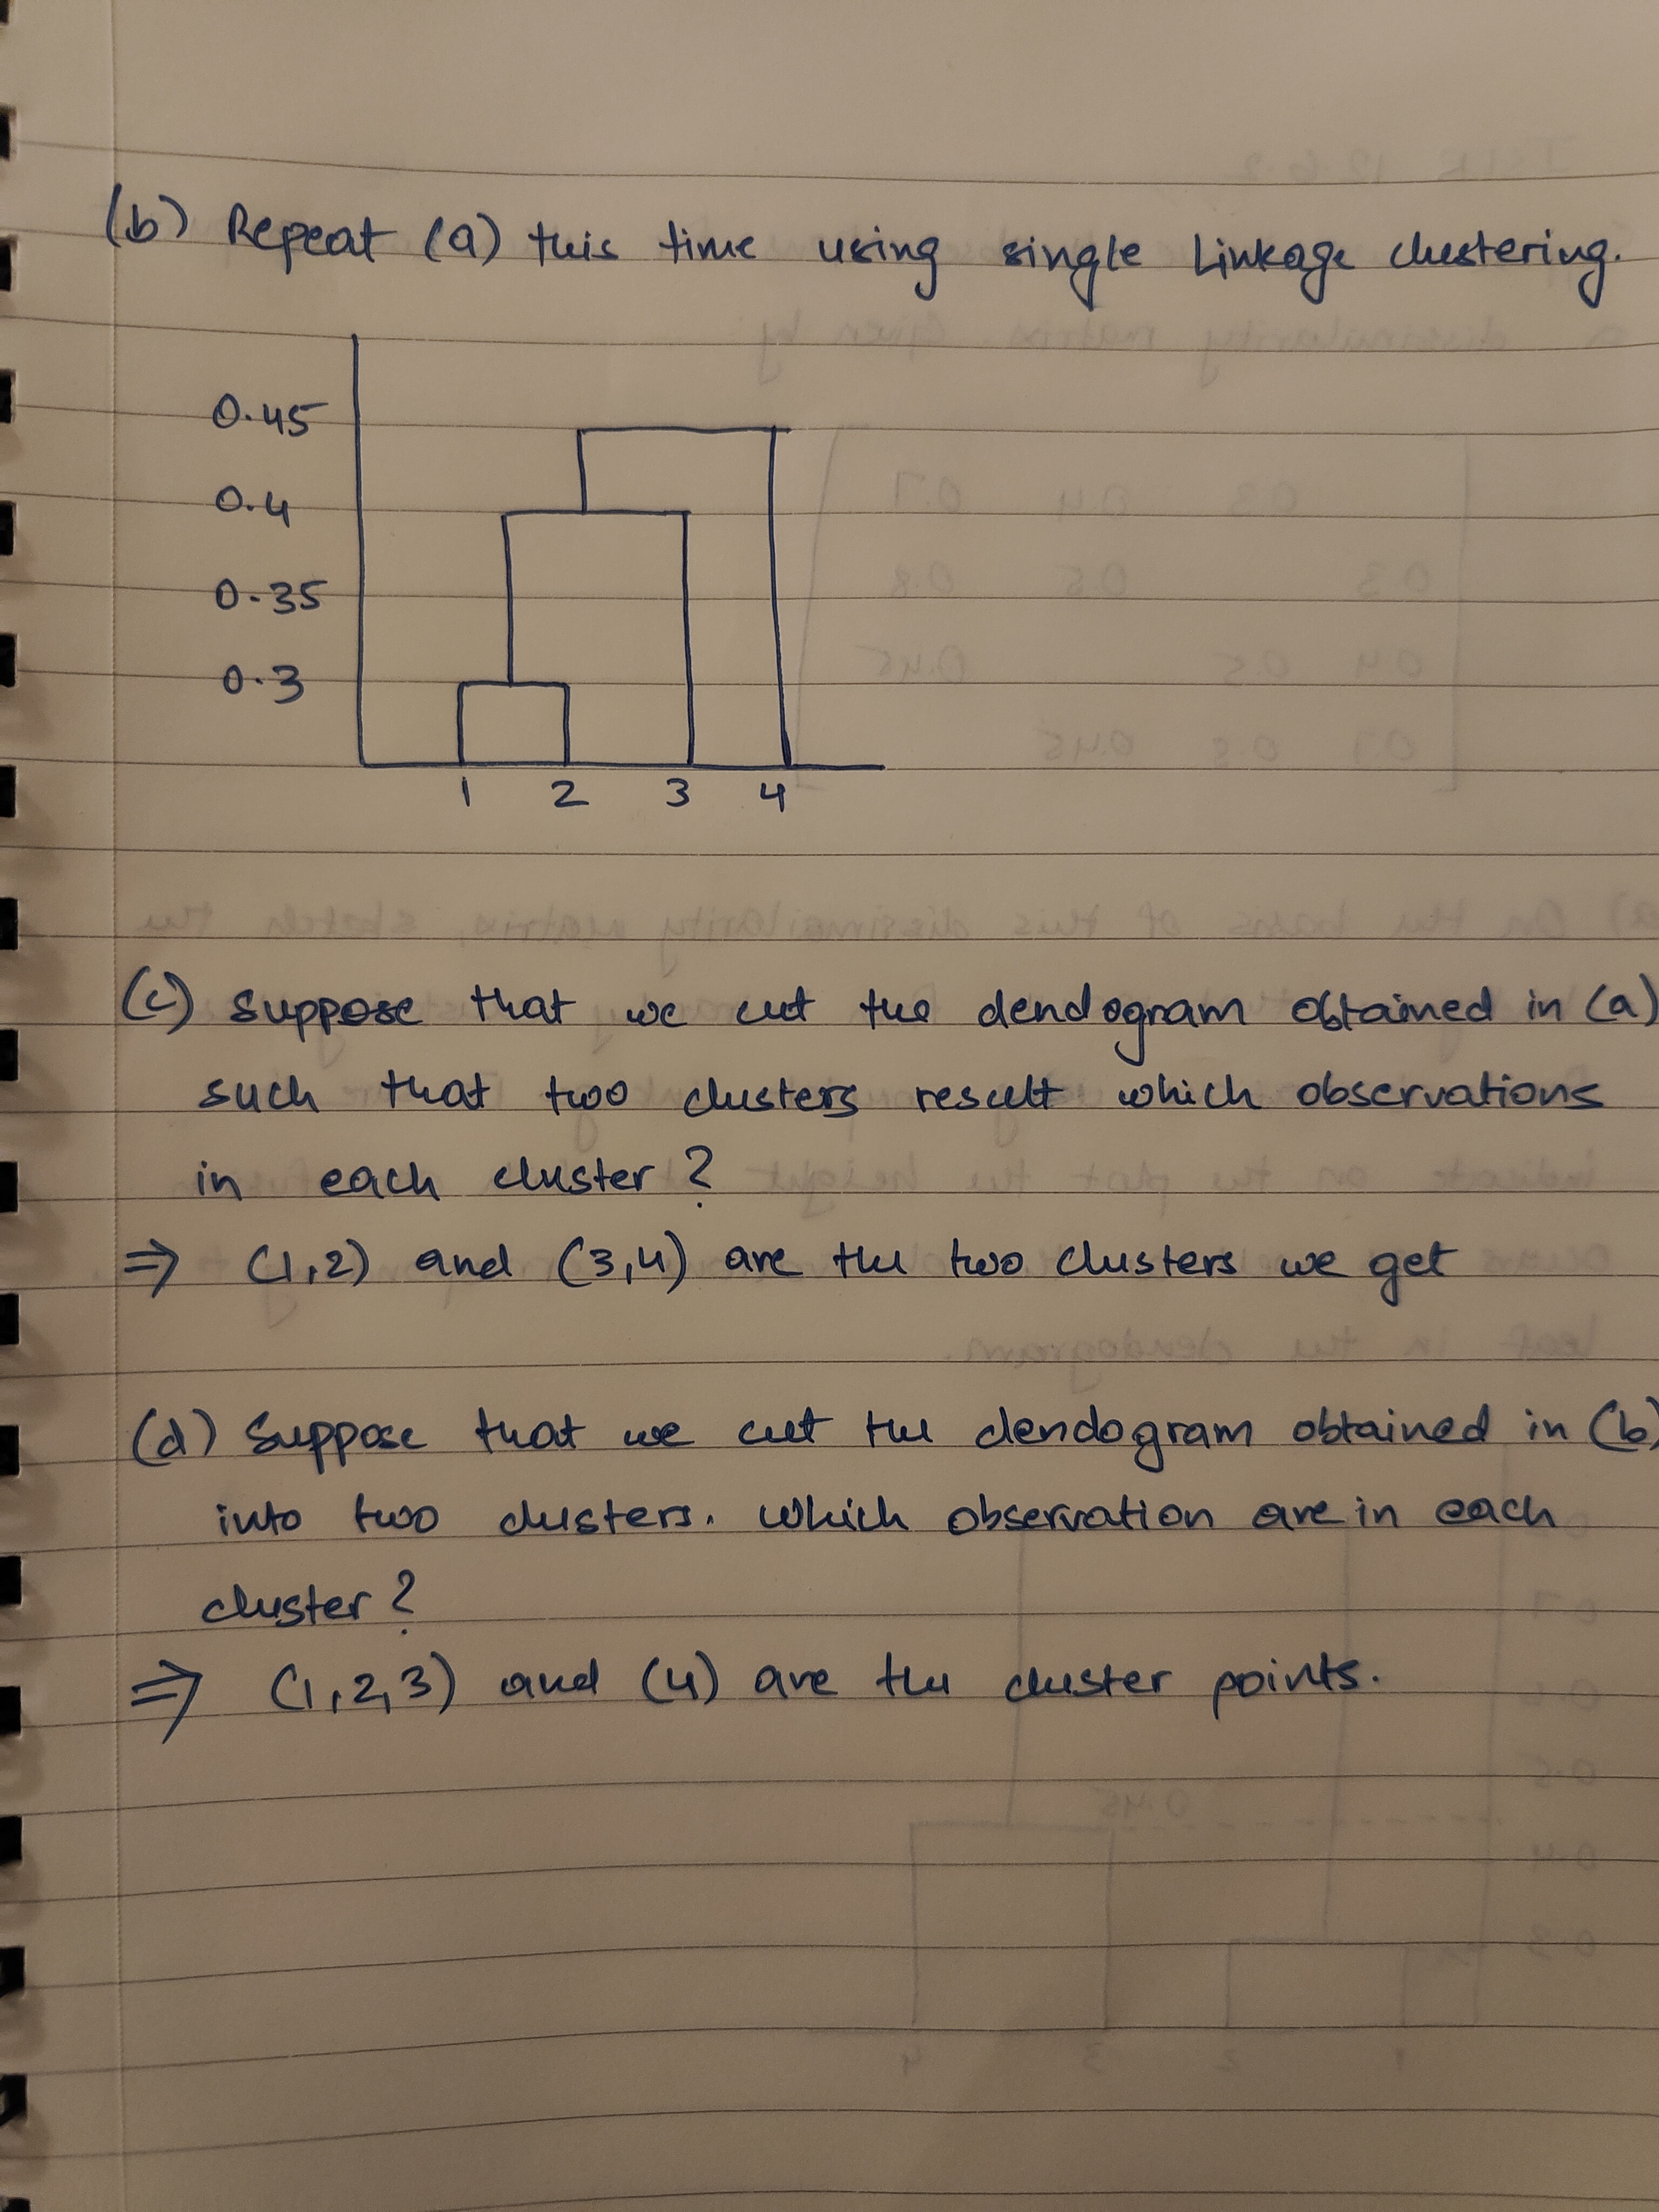 (b) Repeat (a) this time using single linkage clustering.
0.45
0.4
0.35
0.3
1 2 3 4
(c) Suppose that we cut the dendogram obtained in (a)
such that two clusters result which observations
in each cluster?
⇒ (1,2) and (3,4) are the two clusters we get
(d) Suppose that we cut the dendogram obtained in (b)
into two clusters. Which observation are in each
cluster?
⇒ (1,2,3) and (4) are the cluster points.